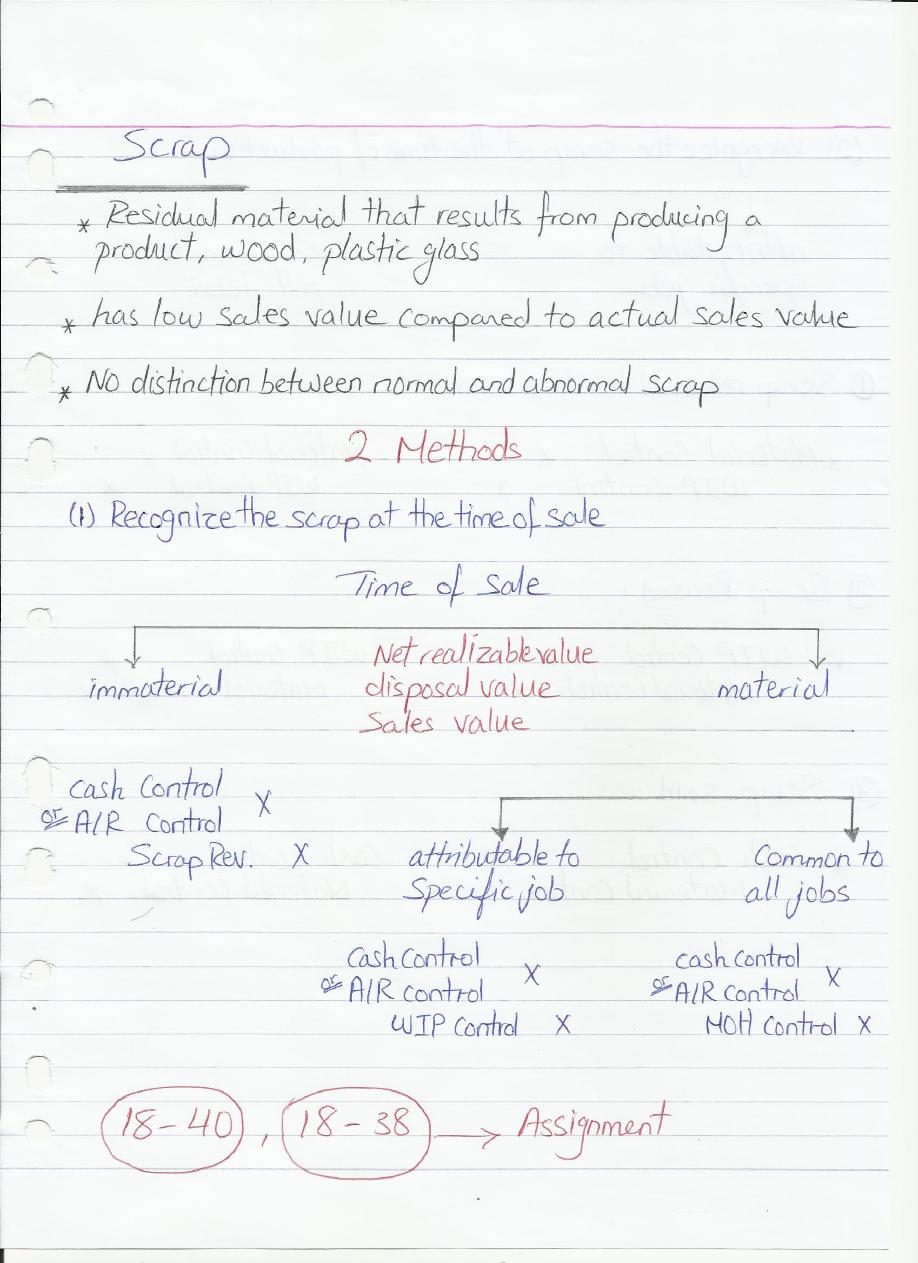 Scrap
* Residual material that results from producing a
product, wood, plastic glass
* has low sales value compared to actual sales value
* No distinction between normal and abnormal scrap
2 Methods
(1) Recognize the scrap at the time of sale
Time of sale
immaterial
Net realizable value
disposal value
Sales value
material
cash Control
or A/R Control X
Scrap Rev. X
attributable to
Specific job
Common to
all jobs
Cash Control
or A/R Control X
WIP Control X
cash Control
or A/R Control X
MOH Control X
18-40 , 18-38 → Assignment